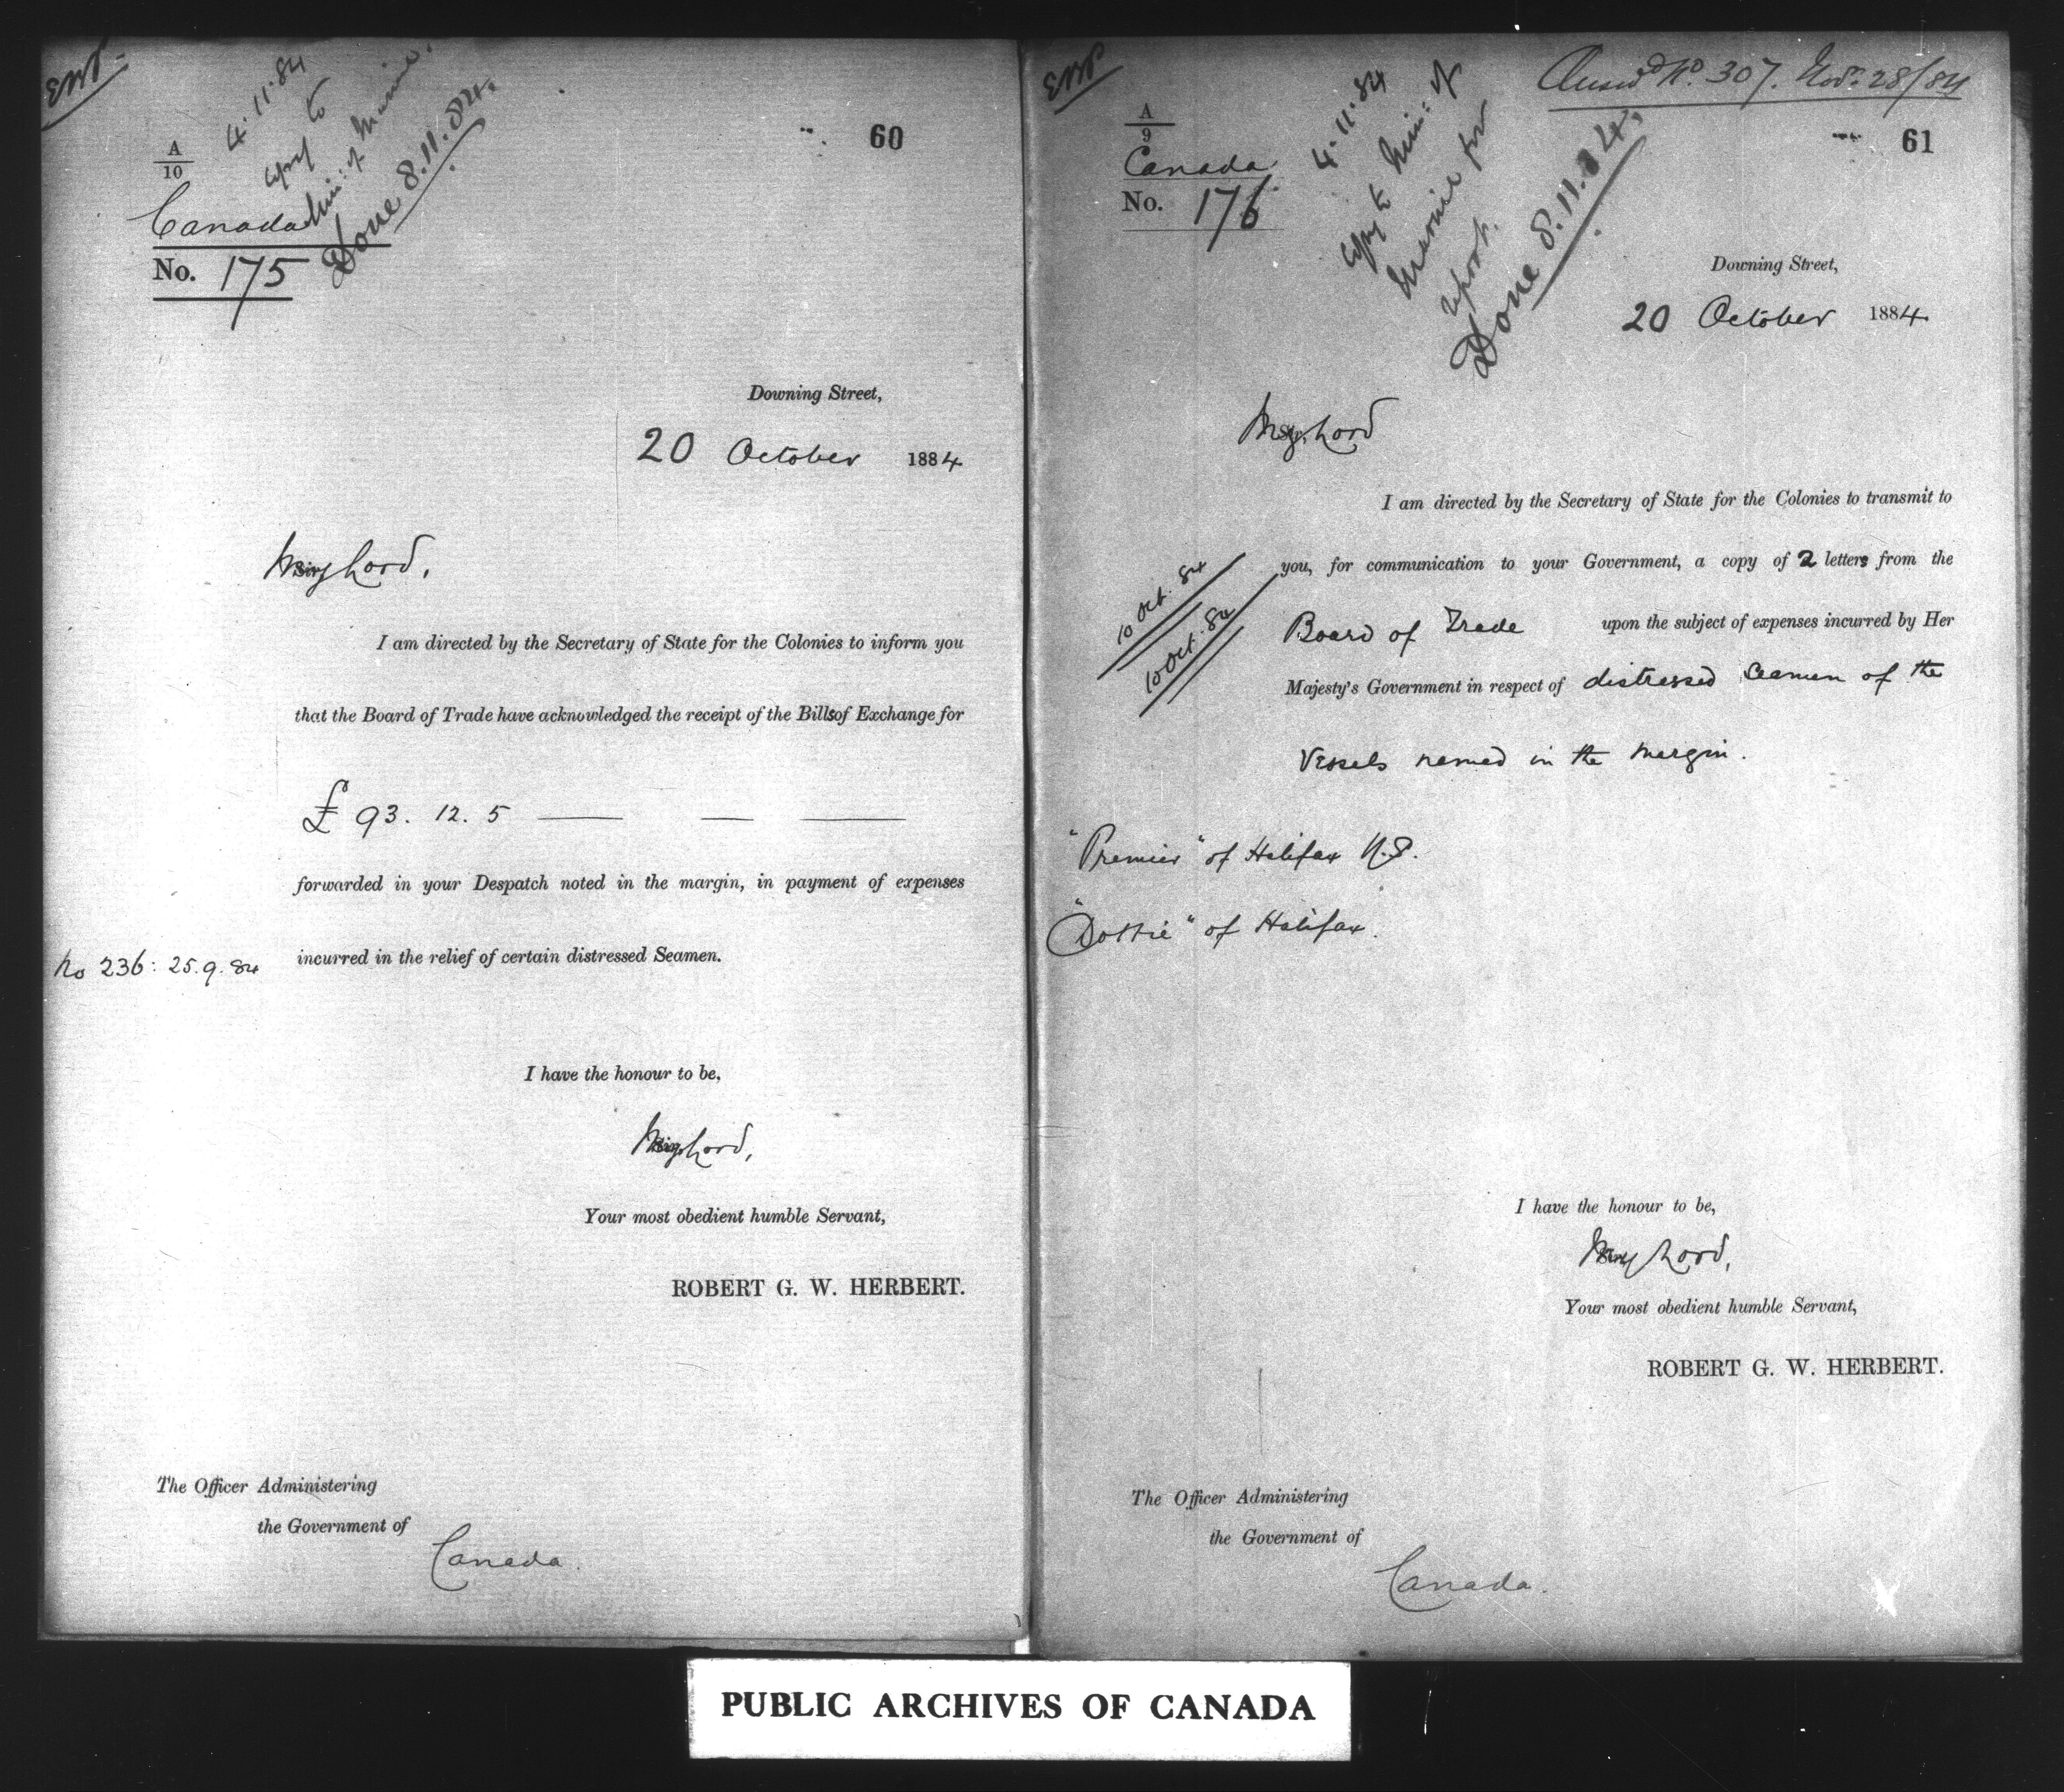 60
A
10
4.11.84
copy to
Min: of Marine.
Done 8.11.84.
Canada
No. 175
Downing Street,
20 October 1884
My Lord,
I am directed by the Secretary of State for the Colonies to inform you
that the Board of Trade have acknowledged the receipt of the Bills of Exchange for
£ 93. 12. 5
forwarded in your Despatch noted in the margin, in payment of expenses
No 236: 25.9.84
incurred in the relief of certain distressed Seamen.
I have the honour to be,
My Lord,
Your most obedient humble Servant,
ROBERT G. W. HERBERT.
The Officer Administering
the Government of
Canada.
Answd No. 307. Nov. 28/84
61
A
9
Canada
No. 176
4.11.84
copy to Min: of
Marine for
report.
Done 8.11.84.
Downing Street,
20 October 1884.
My Lord
I am directed by the Secretary of State for the Colonies to transmit to
you, for communication to your Government, a copy of 2 letters from the
10 Oct. 84
10 Oct. 84
Board of Trade upon the subject of expenses incurred by Her
Majesty's Government in respect of distressed Seamen of the
Vessels named in the margin.
"Premier" of Halifax N.S.
"Dottie" of Halifax.
I have the honour to be,
My Lord,
Your most obedient humble Servant,
ROBERT G. W. HERBERT.
The Officer Administering
the Government of
Canada.
PUBLIC ARCHIVES OF CANADA